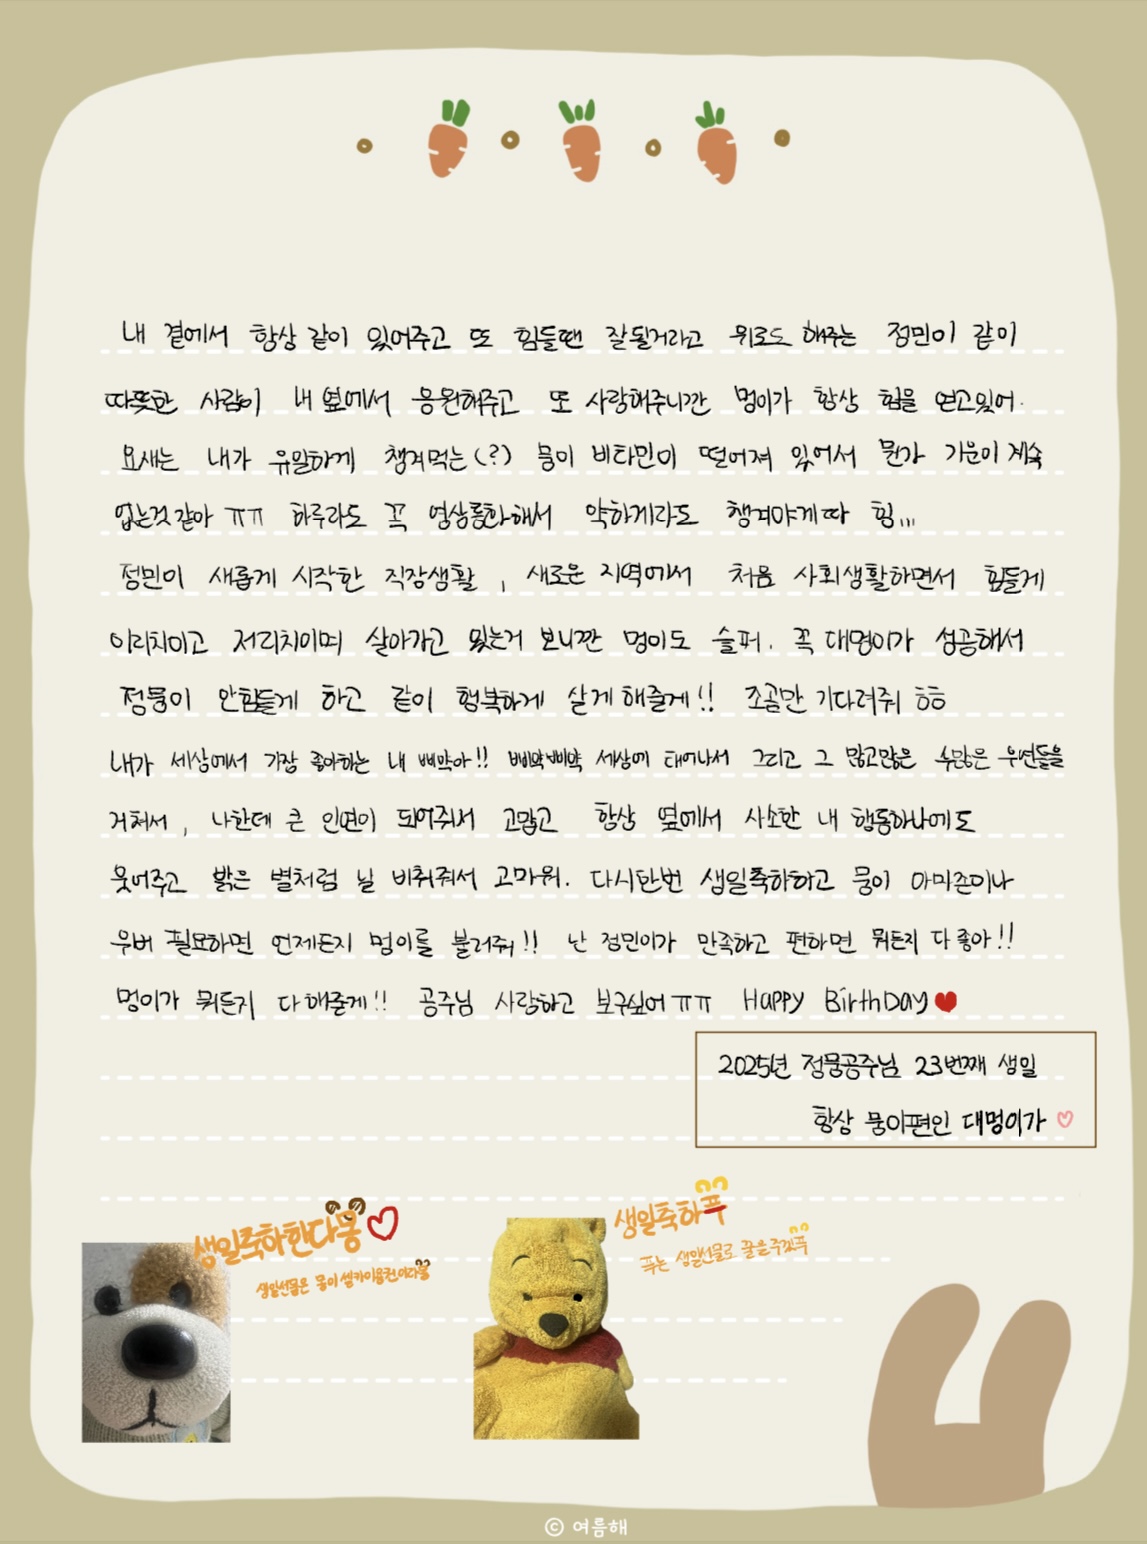 내 곁에서 항상 같이 있어주고 또 힘들땐 잘될거라고 위로도 해주는 정민이 같이
따뜻한 사람이 내 옆에서 응원해주고 또 사랑해주니깐 멍이가 항상 힘을 얻고있어.
요새는 내가 유일하게 챙겨먹는(?) 뭉이 비타민이 떨어져 있어서 뭔가 기운이 계속
없는것 같아 ㅠㅠ 하루라도 꼭 영상통화해서 약하게라도 챙겨야게따 힝,,,
정민이 새롭게 시작한 직장생활, 새로운 지역에서 처음 사회생활하면서 힘들게
이리치이고 저리치이며 살아가고 있는거 보니깐 멍이도 슬퍼. 꼭 대멍이가 성공해서
정뭉이 안힘들게 하고 같이 행복하게 살게 해줄게!! 조곰만 기다려줘 ㅎㅎ
내가 세상에서 가장 좋아하는 내 삐약아!! 삐약삐약 세상에 태어나서 그리고 그 많고많은 수많은 우연들을
거쳐서, 나한데 큰 인연이 되어줘서 고맙고 항상 옆에서 사소한 내 행동하나에도
웃어주고 밝은 별처럼 날 비춰줘서 고마워. 다시한번 생일축하하고 뭉이 아마존이나
우버 필요하면 언제든지 멍이를 불러줘!! 난 정민이가 만족하고 편하면 뭐든지 다 좋아!!
멍이가 뭐든지 다해줄게!! 공주님 사랑하고 보구싶어 ㅠㅠ Happy BirthDay
2025년 정뭉공주님 23번째 생일
항상 뭉이편인 대멍이가
생일축하한다뭉
생일선물은 뭉이 셀카이용권이라뭉
생일축하푸
푸는 생일선물로 꿀을 주겠푸
© 여름해